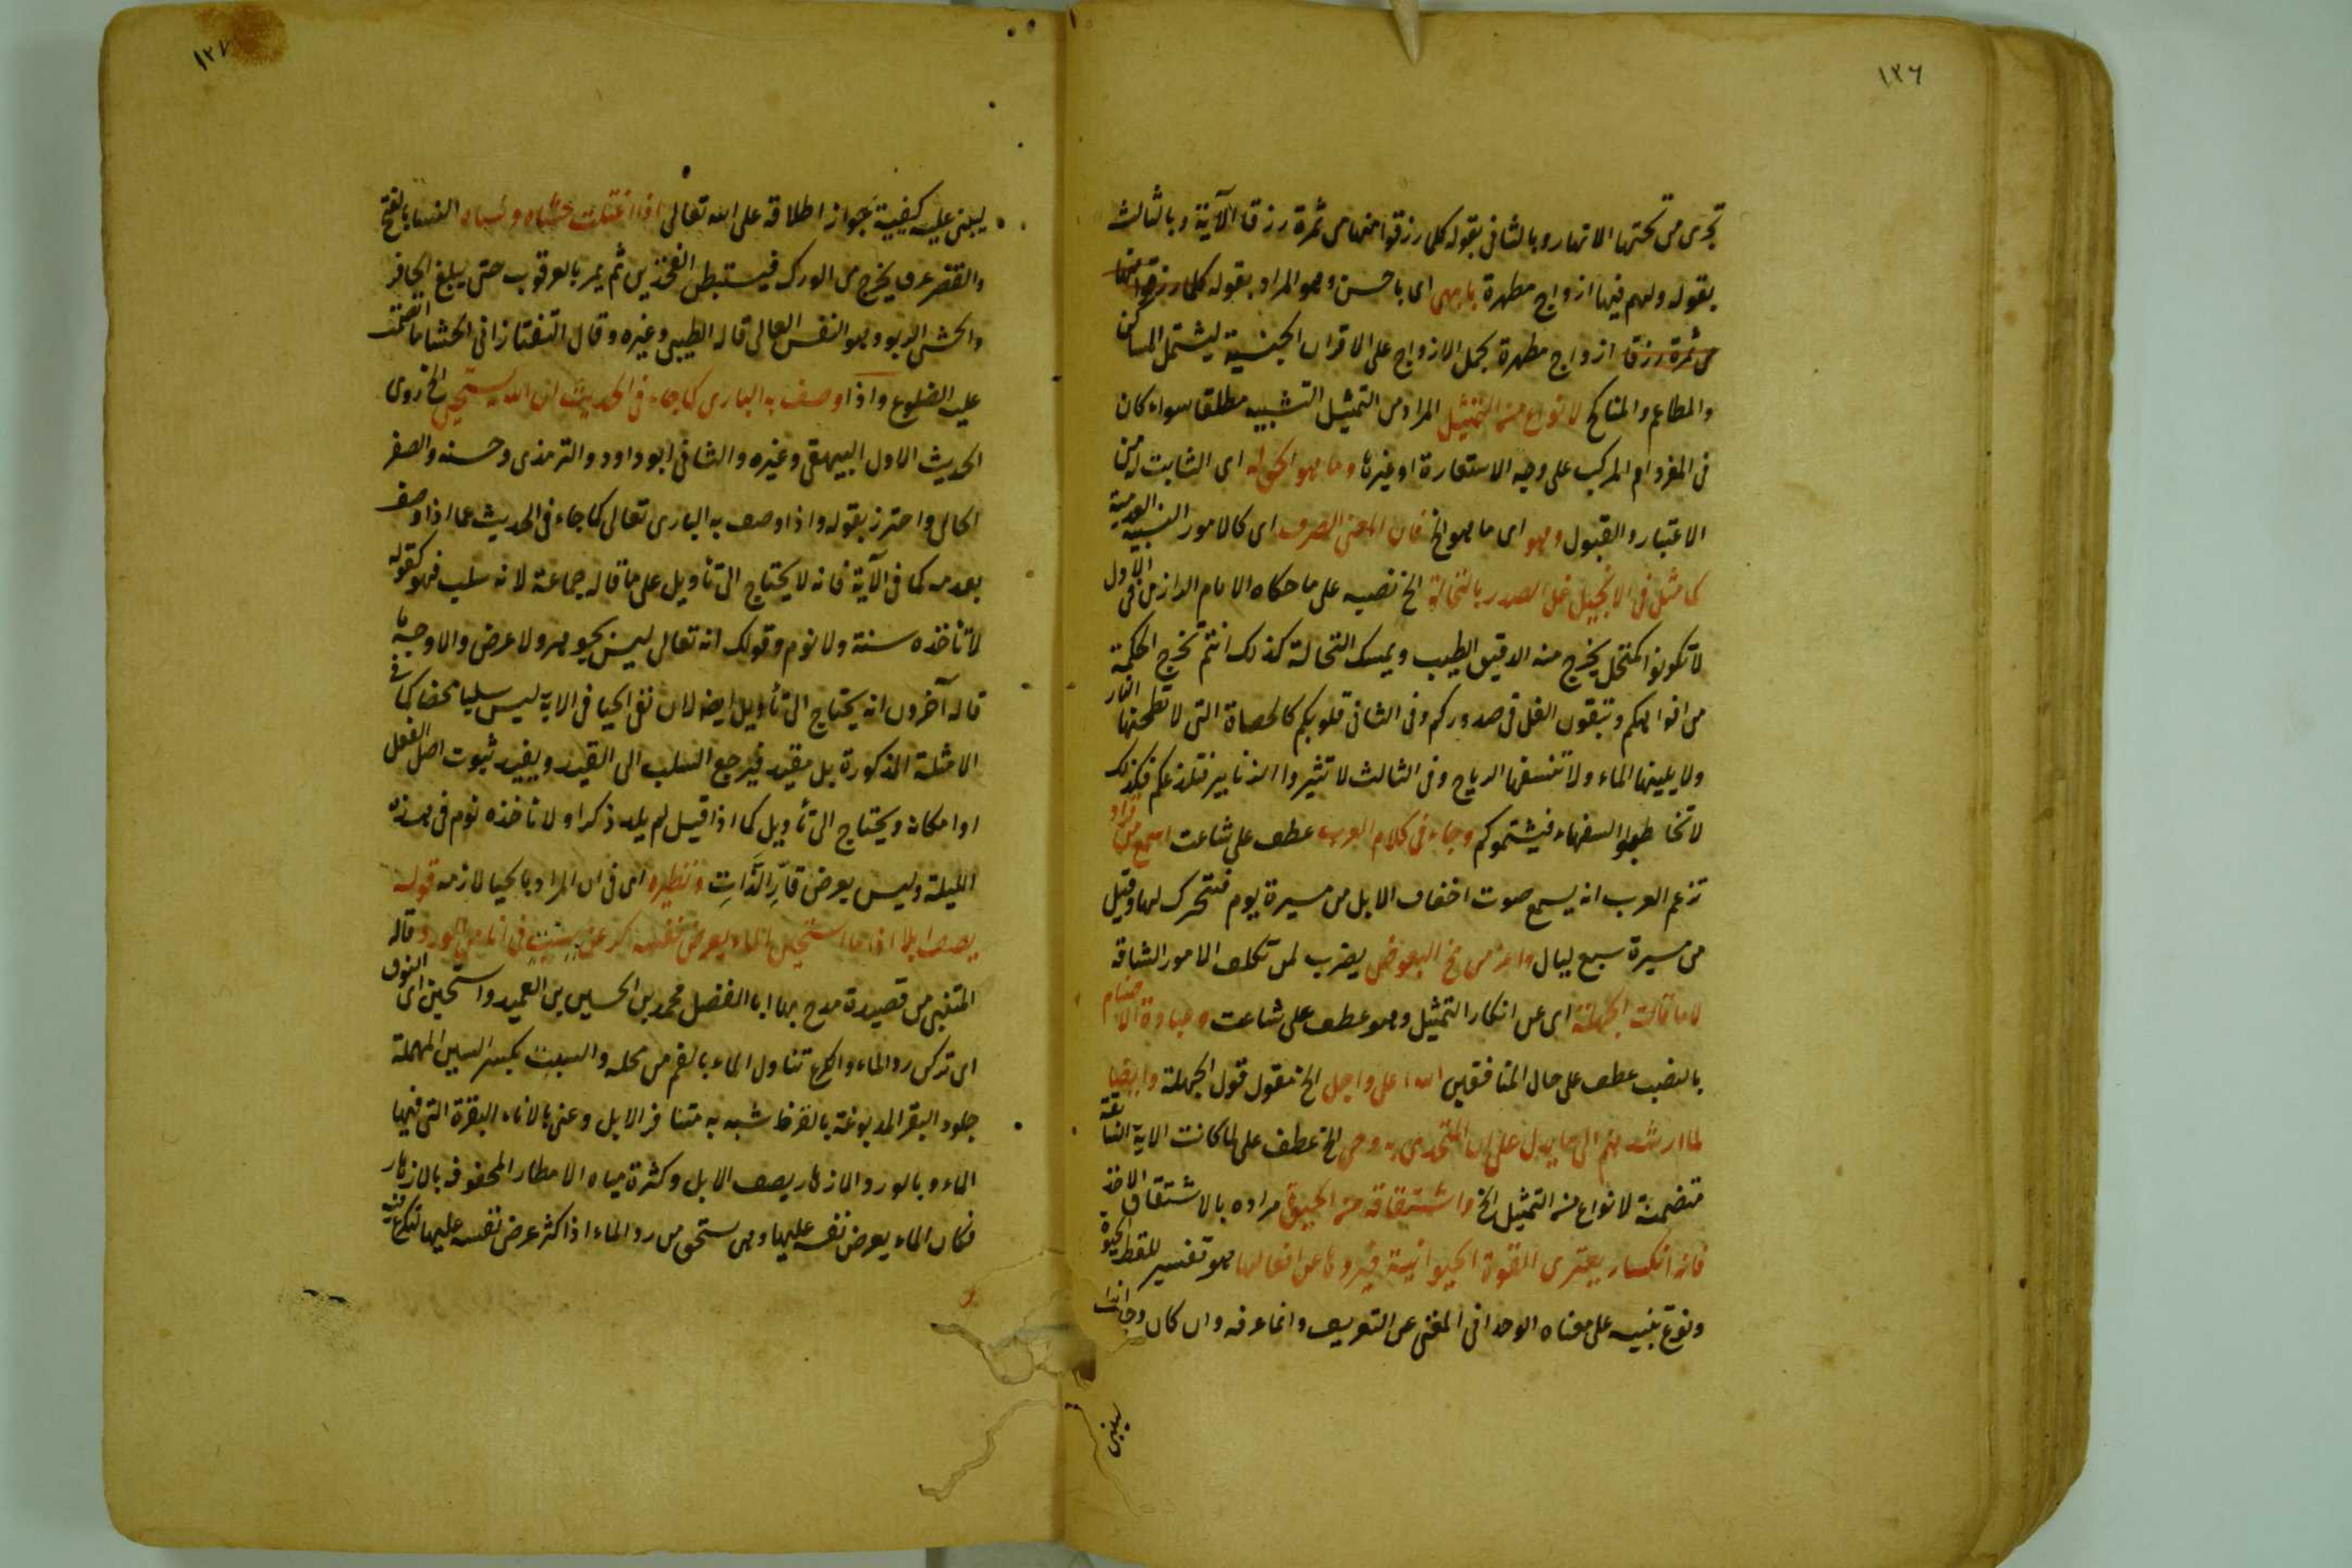 ١٢٦
تجرى من تحتها الانهار وبالثانى بقوله كلما رزقوا منها من ثمرة رزقا الآية وبالثالث
بقوله ولهم فيها ازواج مطهرة بابهى اى باحسن وهو المراد بقوله كلما رزقوا منها
من ثمرة رزقا ازواج مطهرة بحمل الازواج على الاقران الجنسية ليشتمل المساكن
والمطاعم والمناكح لانواع من التمثيل المراد من التمثيل التشبيه مطلقا سواء كان
فى المفرد ام المركب على وجه الاستعارة او غيرها وما هو الحق له اى الثابت له من
الاعتبار والقبول وهو اى ما هو الخ فان المعنى الصرف اى كالامور النسبية العدمية
كما مثل فى الانجيل غل الصدر بالنخالة الخ نصبه على ما حكاه الامام الرازى فى الاول
لا تكونوا كمنخل يخرج منه الدقيق الطيب ويمسك النخالة كذلك انتم تخرج الحكمة
من افواهكم وتبقون الغل فى صدوركم وفى الثانى قلوبكم كالحصاة التى لا تطحنها النار
ولا يلينها الماء ولا تنسفها الرياح وفى الثالث لا تثيروا الزنابير فتلدغكم فكذلك
لا تخاطبوا السفهاء فيشتموكم وجاء فى كلام العرب عطف على شاعت اسمع من قراد
تزعم العرب انه يسمع صوت اخفاف الابل من مسيرة يوم فتتحرك لها وقيل
من مسيرة سبع ليال واعز من مخ البعوض يضرب لمن تكلف الامور الشاقة
لا ما قالت الجهلة اى من انكار التمثيل وهو عطف على شاعت وعبادة الاصنام
بالنصب عطف على حال المنافقين الله اعلى واجل الخ مقول قول الجهلة وايضا
لما ارشدهم الى ما يدل على ان المتحدى به وحى الخ عطف على لما كانت الاية السابقة
متضمنة لانواع من التمثيل الخ واشتقاقه من الحيوة مراده بالاشتقاق الاخذ
فانه انكسار يعترى القوة الحيوانية فيردها عن افعالها هو تفسير للفظ الحيوة
ونوع تنبيه على معناه الوجدانى المغنى عن التعريف وانما عرفه وان كان وجدانيا
ليبنى
١٢٧
ليبنى عليه كيفية جواز اطلاقه على الله تعالى اذا اعتلت حشاه ونساه النسا بالفتح
والقصر عرق يخرج من الورك فيستبطن الفخذين ثم يمر بالعرقوب حتى يبلغ الحافر
والحشى الربو وهو النفس العالى قاله الطيبى وغيره وقال التفتازانى الحشا ما انضمت
عليه الضلوع واذا وصف به البارى كما جاء فى الحديث ان الله يستحيى الخ روى
الحديث الاول البيهقى وغيره والثانى ابو داود والترمذى وحسنه والصفر
الخالى واحترز بقوله واذا وصف به البارى تعالى كما جاء فى الحديث عما اذا وصف
بعدمه كما فى الآية فانه لا يحتاج الى تأويل على ما قاله جماعة لانه سلب فهو كقوله
لا تأخذه سنة ولا نوم وقولك انه تعالى ليس بجوهر ولا عرض والاوجه ما
قاله آخرون انه يحتاج الى تأويل ايضا لان نفى الحيا فى الاية ليس سلبا محضا كما فى
الامثلة المذكورة بل مقيد فيرجع السلب الى القيد ويفيد ثبوت اصل الفعل
او امكانه ويحتاج الى تأويل كما اذا قيل لم يلد ذكرا ولا تأخذه نوم فى هذه
الليلة وليس بعرض قارّ الذات ونظيره اى فى ان المراد بالحيا لازمه قوله
يصف ابلا اذا ما استحين الماء يعرض نفسه كرعن بسبت فى اناء من الورد قاله
المتنبى من قصيدة مدح بها ابا الفضل محمد بن الحسين بن العميد واستحين اى النوق
اى تركن رد الماء والكرع تناول الماء بالفم من محله والسبت بكسر السين المهملة
جلود البقر المدبوغة بالقرظ شبه به مشافر الابل وعنى بالاناء البقرة التى فيها
الماء وبالورد الازهار يصف الابل وكثرة مياه الامطار المحفوفة بالازهار
فكان الماء يعرض نفسه عليها وهى تستحى من رد الماء اذا كثر عرض نفسه عليها فتكرع فيه